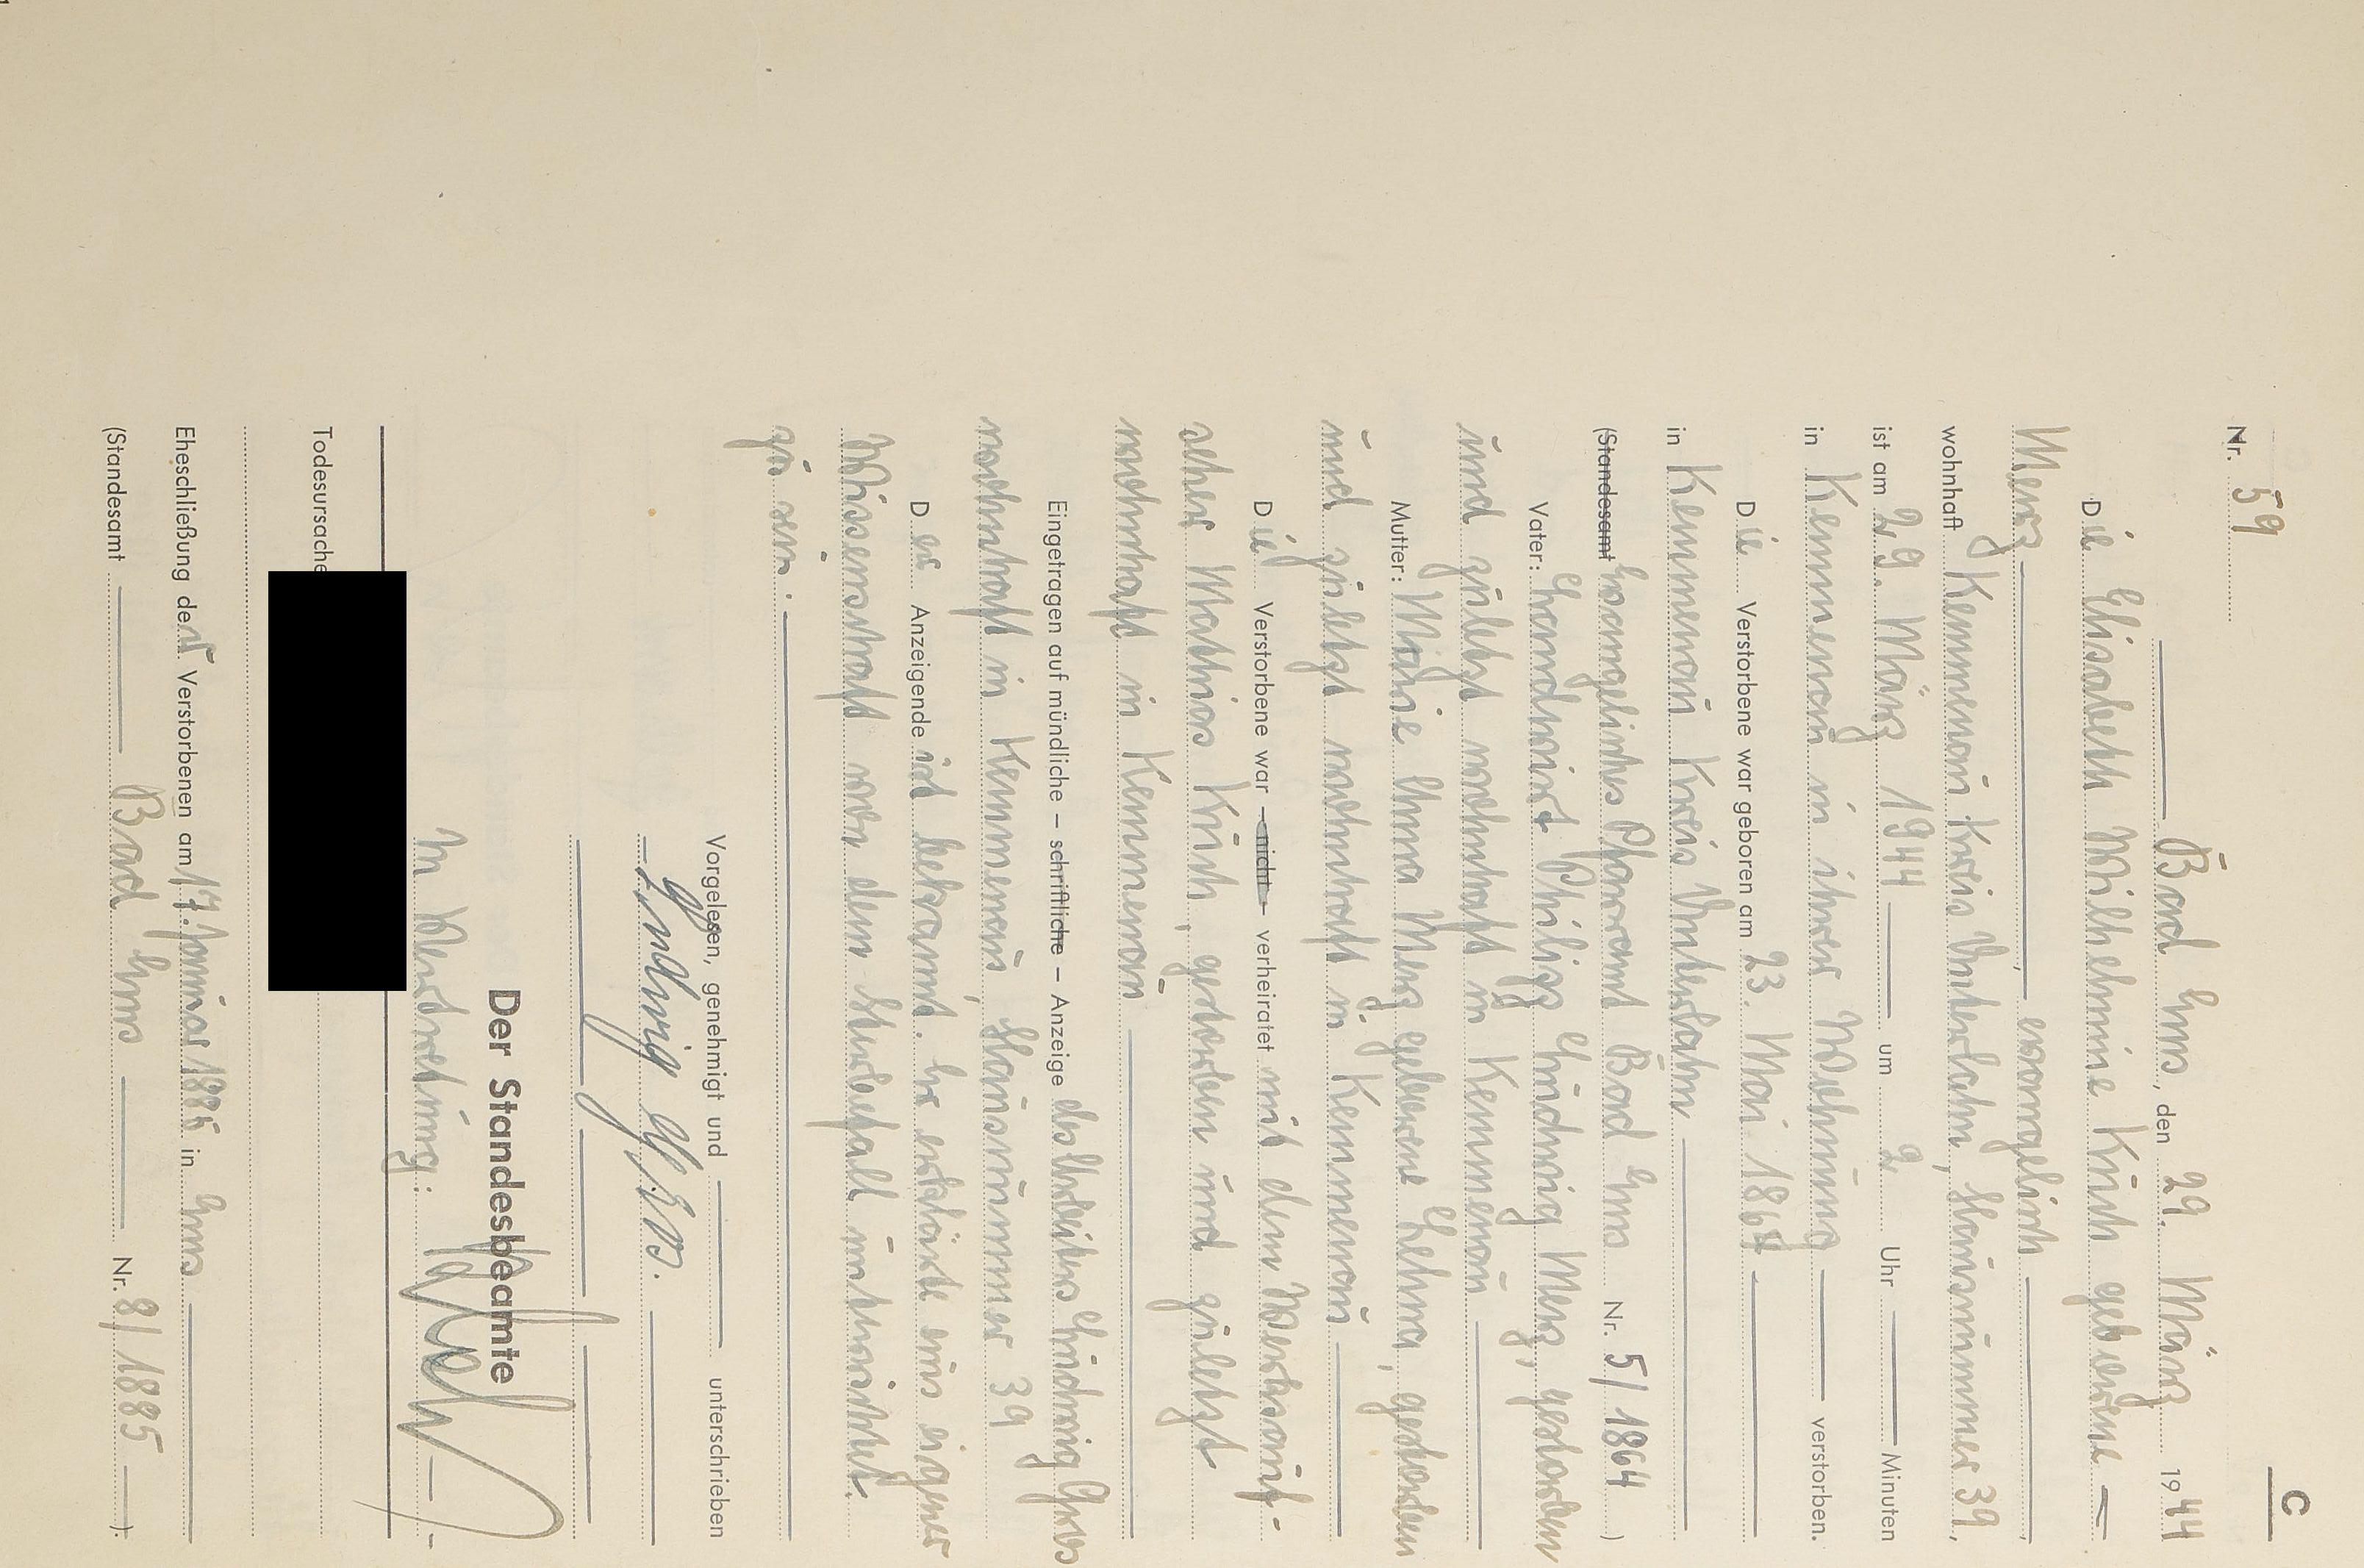 C
Nr. 59
Bad Ems, den 29. März 1944
Die Elisabeth Wilhelmine Kusch geborene
Merz, evangelisch
wohnhaft Kemmenau Kreis Unterlahn, Hausnummer 39,
ist am 29. März 1944 um 2 Uhr Minuten
in Kemmenau in ihrer Wohnung verstorben.
Die Verstorbene war geboren am 23. Mai 1864
in Kemmenau Kreis Unterlahn
(Standesamt Evangelisches Pfarramt Bad Ems Nr. 5/1864)
Vater: Landwirt Philipp Ludwig Merz, gestorben
und zuletzt wohnhaft in Kemmenau
Mutter: Marie Anna Merz geborene Lehna, gestorben
und zuletzt wohnhaft in Kemmenau
Die Verstorbene war – nicht – verheiratet mit dem Werkauf-
seher Mathias Kusch, gestorben und zuletzt
wohnhaft in Kemmenau
Eingetragen auf mündliche – schriftliche – Anzeige des Arbeiters Ludwig Gros
wohnhaft in Kemmenau, Hausnummer 39
Der Anzeigende ist bekannt. Er erklärte aus eigener
Wissenschaft von dem Sterbefall unterrichtet
zu sein.
Vorgelesen, genehmigt und unterschrieben
Ludwig Gros.
Der Standesbeamte
In Vertretung:
Todesursache
Eheschließung der Verstorbenen am 17. Januar 1885 in Ems
(Standesamt Bad Ems Nr. 8/1885).